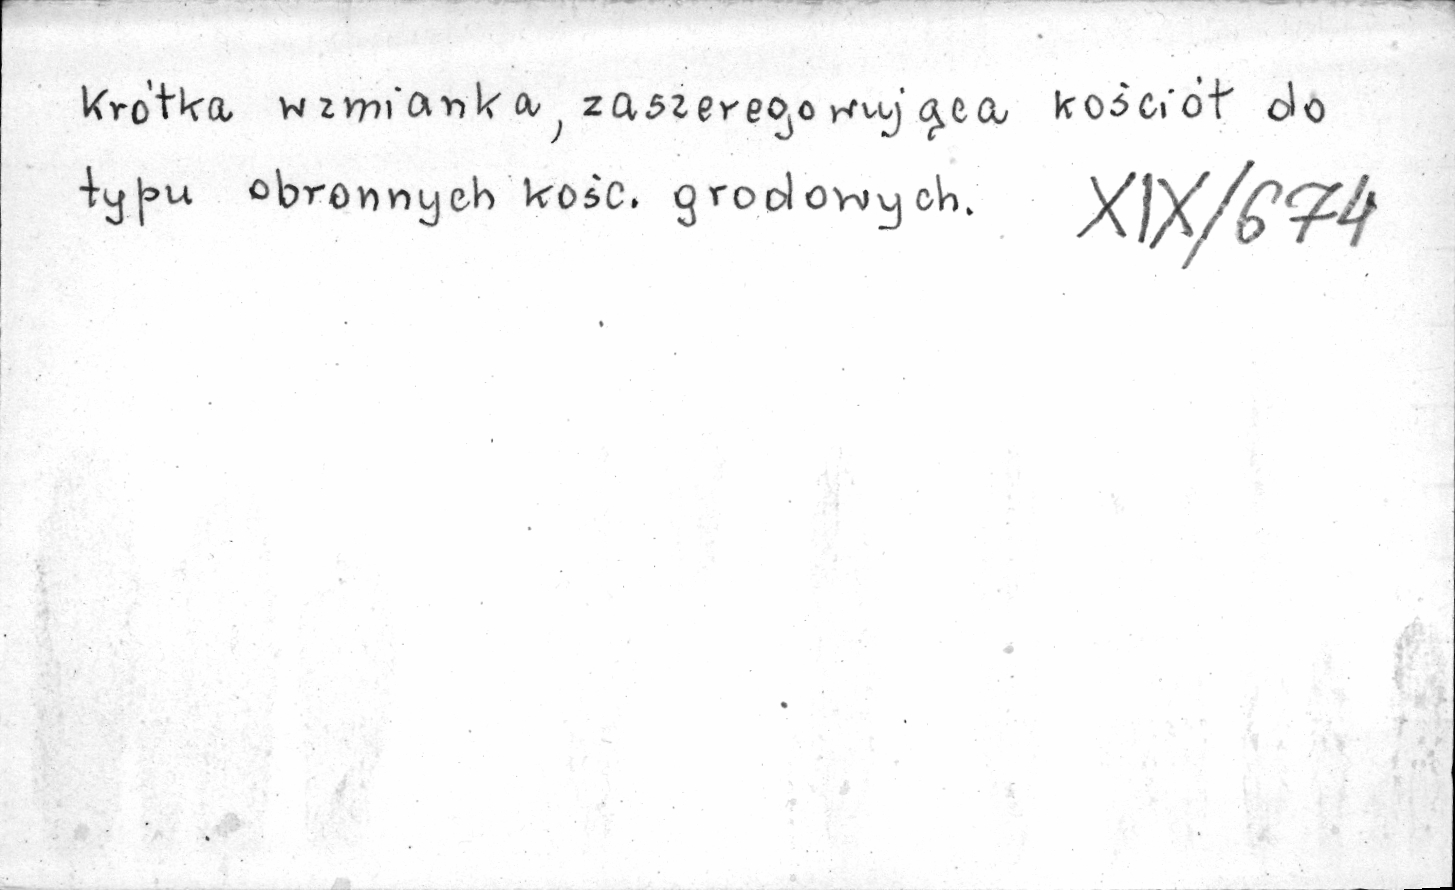 Krótka wzmianka, zaszeregowująca kościół do
typu obronnych kośc. grodowych. XIX/674